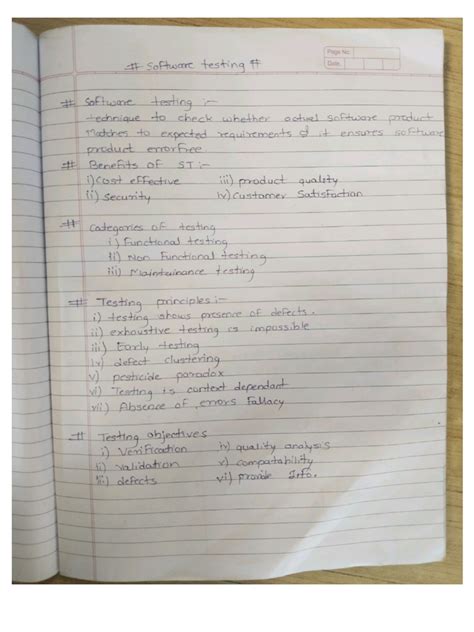 Page No.
Date.
# Software testing #
# Software testing :-
technique to check whether actual software product
Matches to expected requirements & it ensures software
product errorfree
# Benefits of ST :-
i) Cost effective iii) product quality
ii) Security iv) Customer Satisfaction
# Categories of testing
i) Functional testing
ii) Non Functional testing
iii) Maintainance testing
# Testing principles :-
i) testing shows presence of defects.
ii) exhoustive testing is impossible
iii) Early testing
iv) defect clustering
v) pesticide paradox
vi) Testing is context dependant
vii) Absence of errors Fallacy
# Testing objectives
i) Verification iv) quality analysis
ii) validation v) compatability
iii) defects vi) provide Info.